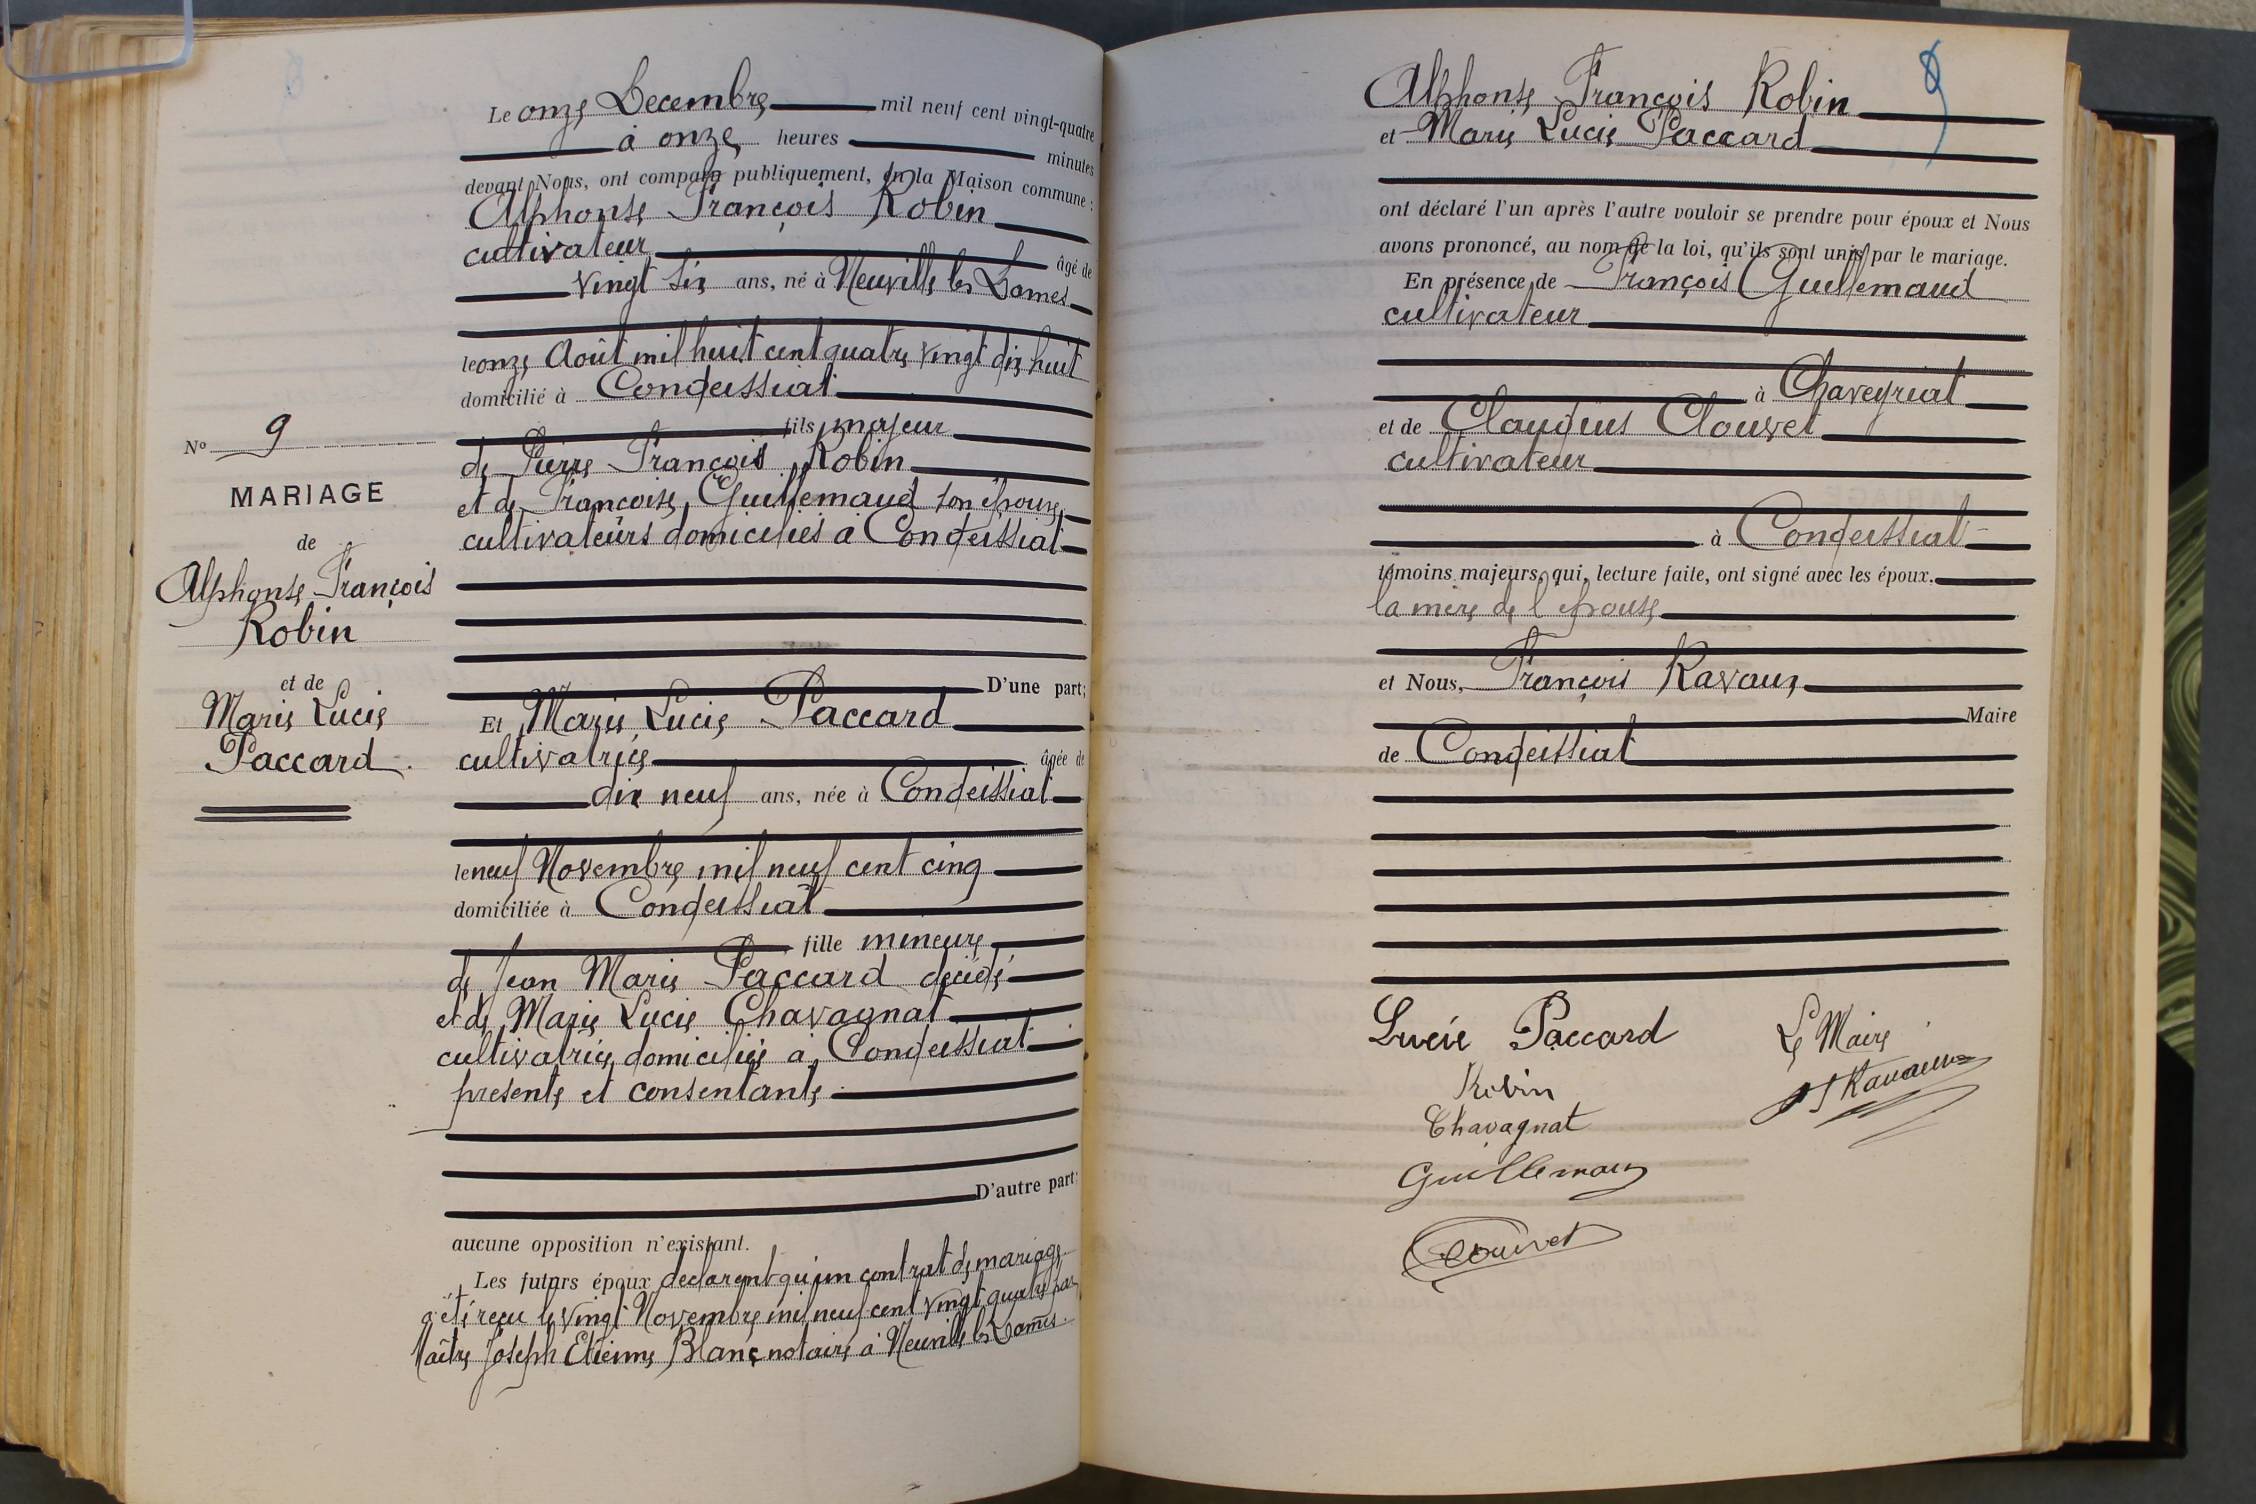 Le onze Decembre mil neuf cent vingt-quatre
à onze heures minutes
devant Nous, ont comparu publiquement, en la Maison commune :
Alphonse François Robin
cultivateur âgé de
vingt six ans, né à Neuville les Dames
le onze Août mil huit cent quatre vingt dix huit
domicilié à Condeissiat
fils majeur
de Pierre François Robin
et de Françoise Guillemaud son épouse
cultivateurs domiciliés à Condeissiat
D'une part;
Et Marie Lucie Paccard
cultivatrice âgée de
dix neuf ans, née à Condeissiat
le neuf Novembre mil neuf cent cinq
domiciliée à Condeissiat
fille mineure
de Jean Marie Paccard décédé
et de Marie Lucie Chavagnat
cultivatrice domiciliée à Condeissiat
présente et consentante
D'autre part;
aucune opposition n'existant.
Les futurs époux declarent qu'un contrat de mariage
a été reçu le vingt Novembre mil neuf cent vingt quatre par
Maître Joseph Etienne Blanc notaire à Neuville les Dames.
No 9
MARIAGE
de
Alphonse François
Robin
et de
Marie Lucie
Paccard.
Alphonse François Robin
et Marie Lucie Paccard
ont déclaré l'un après l'autre vouloir se prendre pour époux et Nous
avons prononcé, au nom de la loi, qu'ils sont unis par le mariage.
En présence de François Guillemaud
cultivateur
à Chaveyriat
et de Claudius Clouvet
cultivateur
à Condeissiat
témoins majeurs, qui, lecture faite, ont signé avec les époux.
la mère de l'épouse
et Nous, François Ravaux
Maire
de Condeissiat
Lucie Paccard
Le Maire
Robin
Ravaux
Chavagnat
Guillemaud
Clouvet